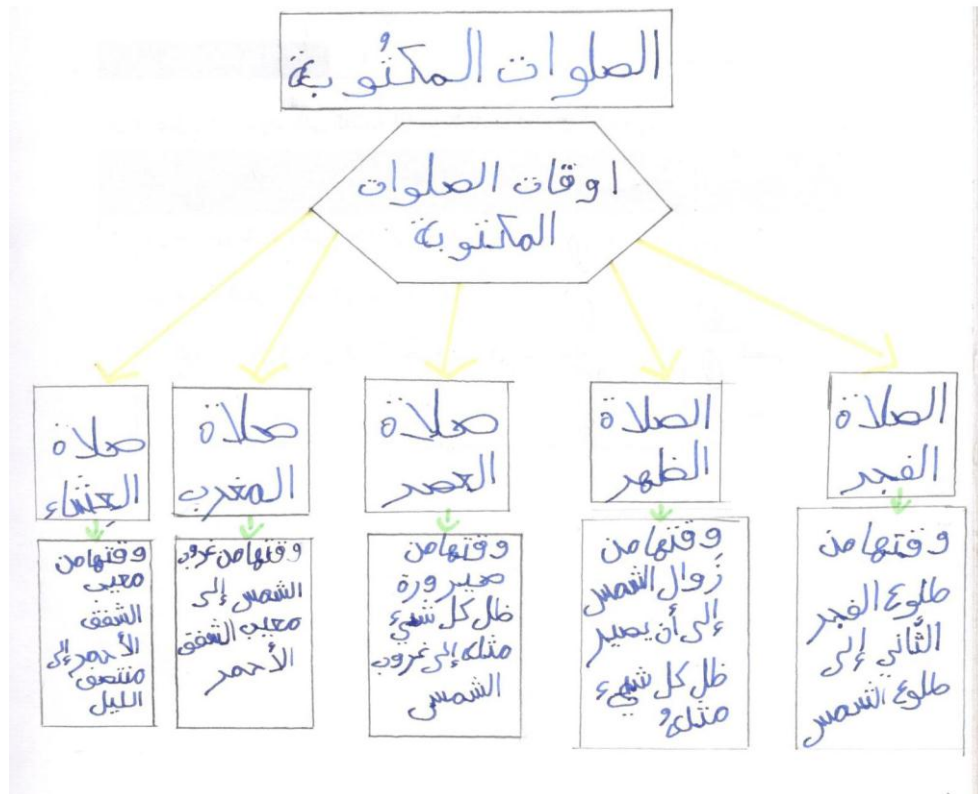 الصلوات المكتُوبة
اوقات الصلوات
المكتوبة
الصلاة
الفجر
وقتها من
طلوع الفجر
الثَّاني إلى
طلوع الشمس
الصلاة
الظهر
وقتها من
زَوال الشمس
إلى أن يصير
ظل كل شيء
مثلهُ
صلاة
العصر
وقتها من
صيرورة
ظل كل شيء
مثله إلى غروب
الشمس
صلاة
المغرب
وقتها من غروب
الشمس إلى
مغيب الشفق
الأحمر
صلاة
العِشاء
وقتها من
مغيب
الشفق
الأحمر إلى
منتصف
الليل